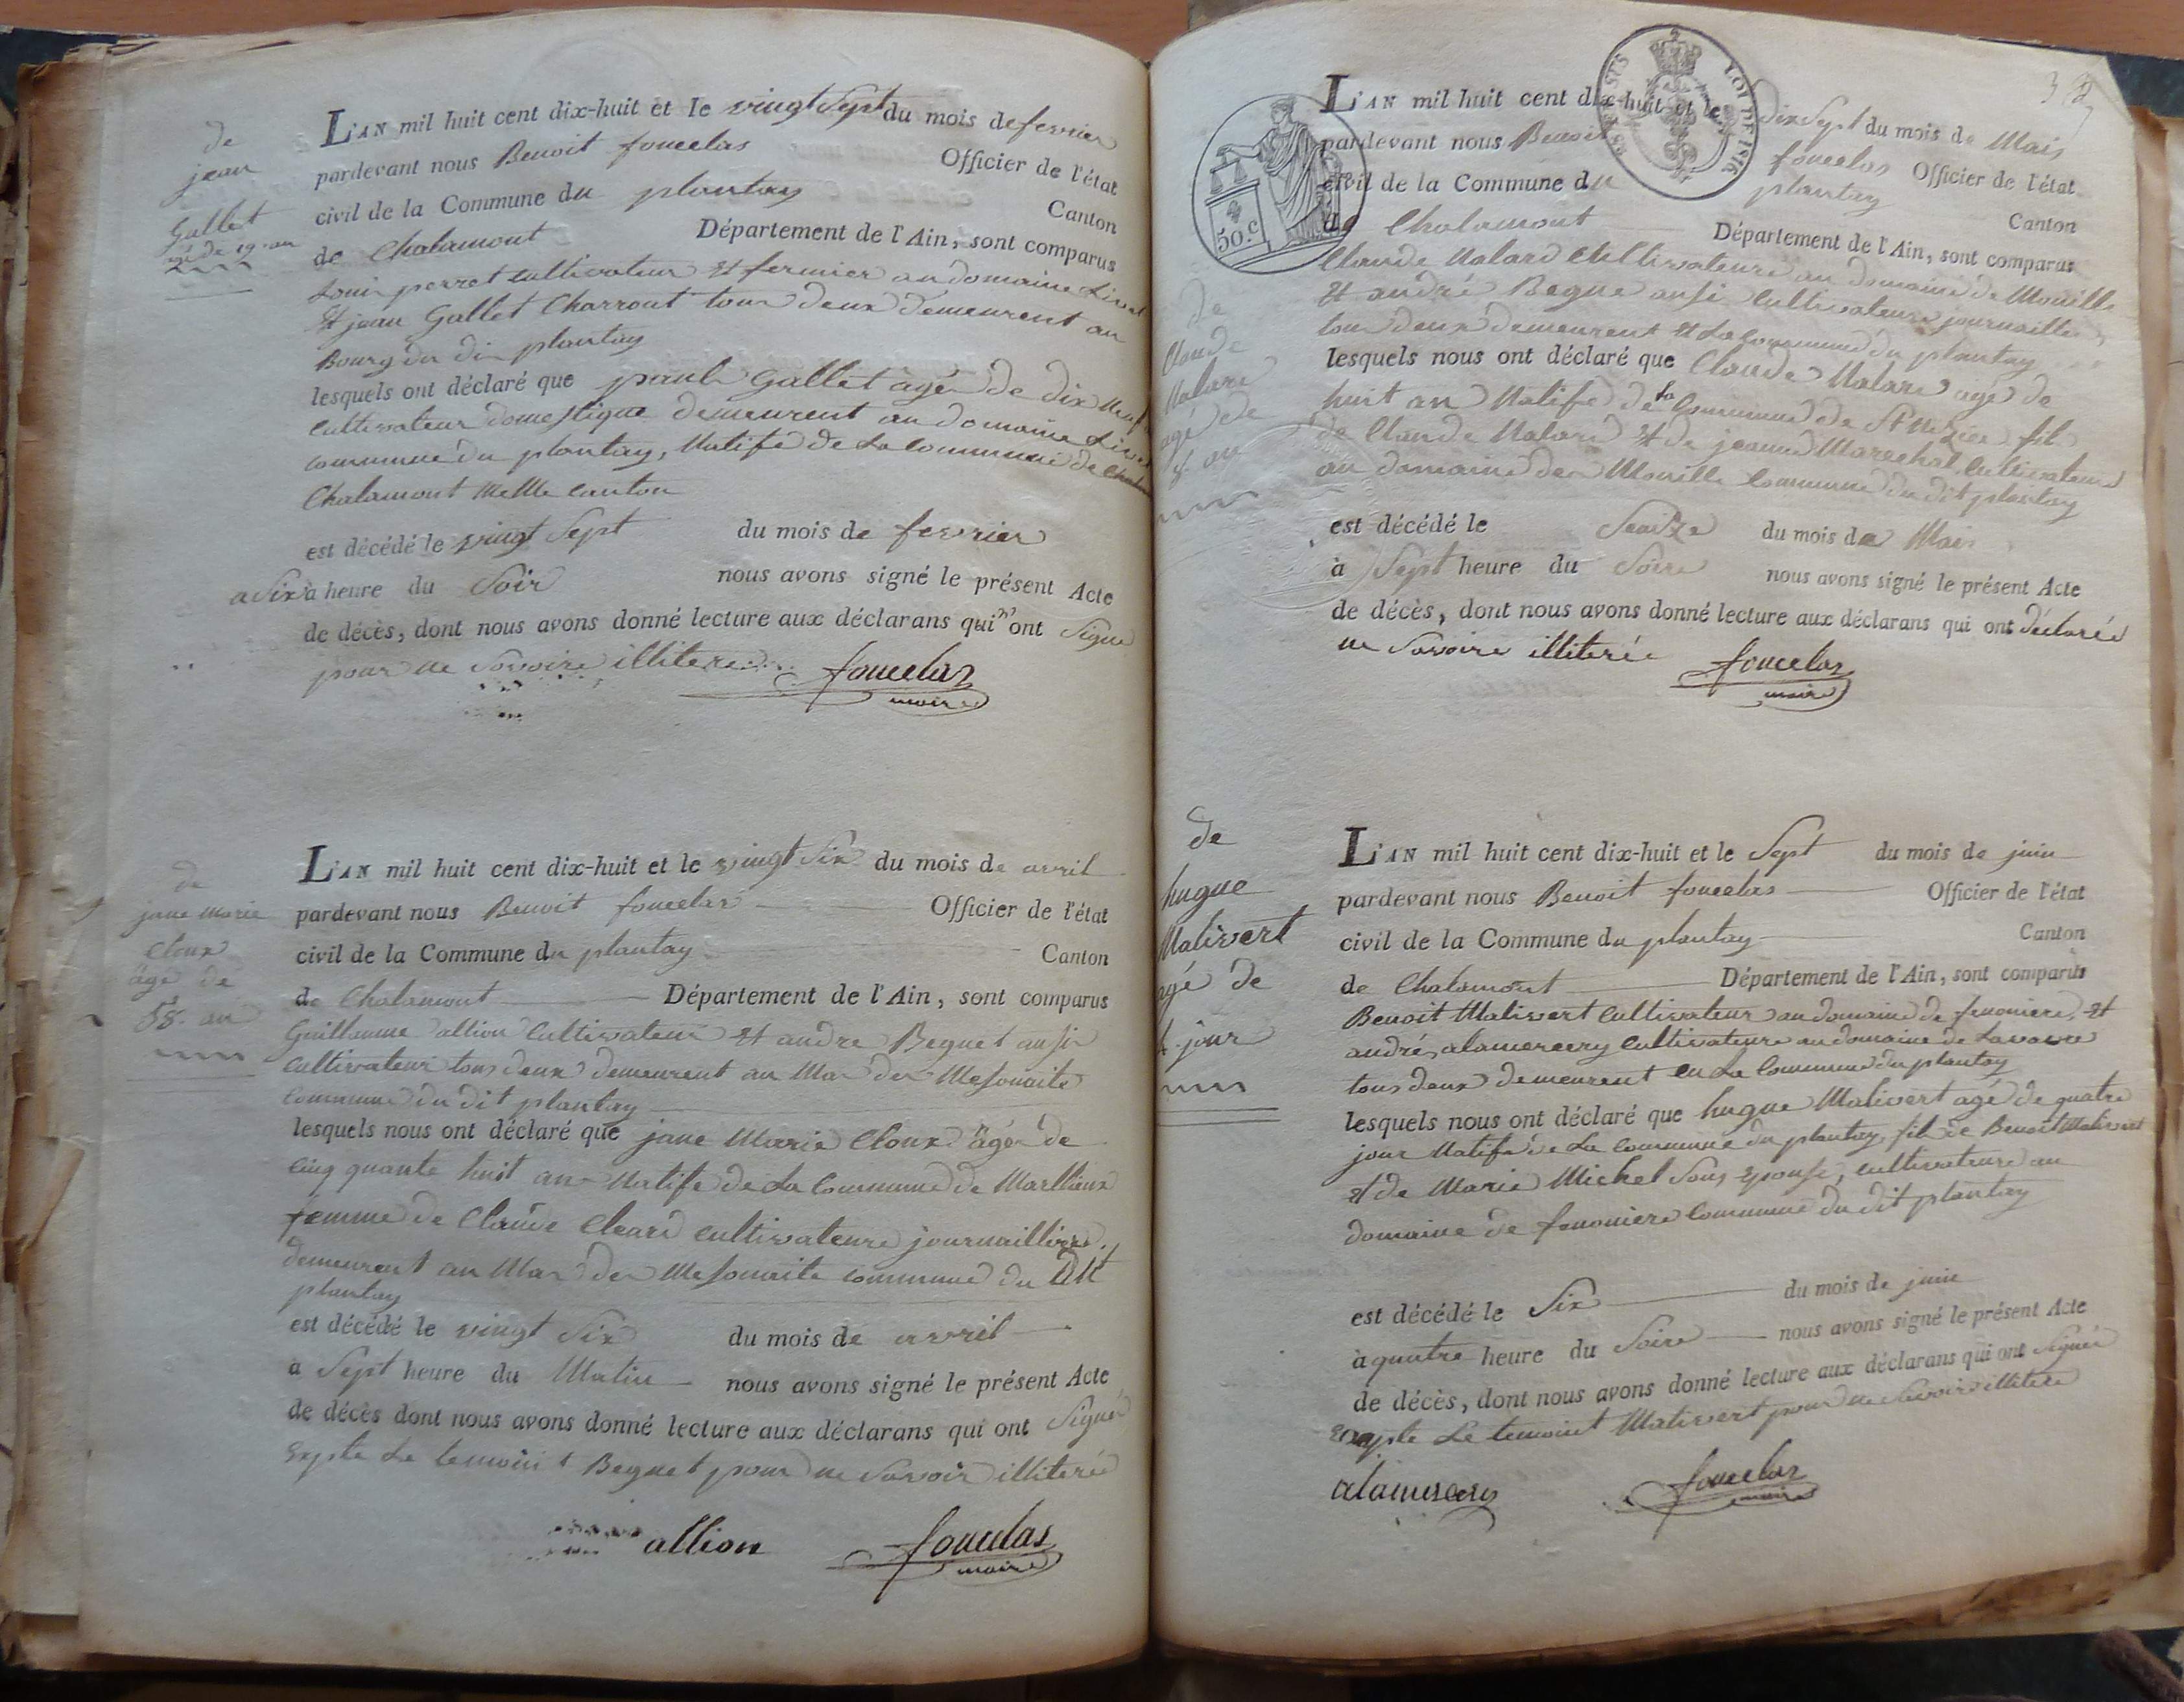 de
jean
Gallet
agé de 19 an
L'AN mil huit cent dix-huit et le vingt Sept du mois de fevrier
pardevant nous Benoit foucelas Officier de l'état
civil de la Commune du plantay Canton
de Chalamont Département de l'Ain, sont comparus
Louis perret cultivateur et fermier au domaine
Et jean Gallet Charront tous deux demeurent au
Bourg du dit plantay
lesquels ont déclaré que Gallet agé de dix neuf
Cultivateur domestique demeurent au domaine
commune du plantay, Natife de La commune de
Chalamont canton
est décédé le vingt Sept du mois de fevrier
a Six à heure du Soir nous avons signé le présent Acte
de décès, dont nous avons donné lecture aux déclarans qui n'ont Signé
pour ne Savoire illitere
foucelas
maire
de
jane marie
Cloux
agé de
58 an
L'AN mil huit cent dix-huit et le vingt Six du mois de avril
pardevant nous Benoit foucelas Officier de l'état
civil de la Commune du plantay Canton
de Chalamont Département de l'Ain, sont comparus
Guillaume allion Cultivateur Et andre Beguet ausi
Cultivateur tous deux demeurent au Mas des
commune du dit plantay
lesquels nous ont déclaré que jane Marie Cloux agée de
Cinq quante huit an Natife de La Commune de Marllieux
femme de Claude Cleard cultivateure journaillire
demeurent au Mas des commune du Dit
plantay
est décédé le vingt Six du mois de avril
à Sept heure du Matin nous avons signé le présent Acte
de décès dont nous avons donné lecture aux déclarans qui ont Signé
Exple Le temoint Beguet pour ne Savoir illiteré
allion fouculas
maire
LOI DE 1816
50.c
L'AN mil huit cent dix-huit et le dix Sept du mois de Mais
pardevant nous Benoit foucelas Officier de l'état
civil de la Commune du plantay Canton
de Chalamont Département de l'Ain, sont comparus
Claude Nalard Cultivateure au domaine de Mouille
Et andré Begue ausi Cultivateure journaillie
tous deux demeurent Et La commune du plantay
lesquels nous ont déclaré que Claude Nalard agé de
huit an Natife de la Commune de St fils
de Claude Nalard Et de jeanne Marechal Cultivateure
au domaine des Mouille Commune du dit plantay
est décédé le Seaize du mois de Mais
à Sept heure du Soire nous avons signé le présent Acte
de décès, dont nous avons donné lecture aux déclarans qui ont déclaré
ne Savoire illiterée
foucelas
maire
de
Claude
Nalard
agé de
8 an
de
hugue
Malivert
agé de
4 jour
L'AN mil huit cent dix-huit et le Sept du mois de juin
pardevant nous Benoit foucelas Officier de l'état
civil de la Commune du plantay Canton
de Chalamont Département de l'Ain, sont comparus
Benoit Malivert Cultivateur au domaine de fenoniere, Et
andré alamercery Cultivateure au domaine de Lavavre
tous deux demeurent en La Commune du plantay
lesquels nous ont déclaré que hugue Malivert agé de quatre
jour Natife de La commune du plantay fils de Benoit Malivert
Et de Marie Michel Sous Epouse, cultivateure au
domaine de fenoniere Commune du dit plantay
est décédé le Six du mois de juin
à quatre heure du Soire nous avons signé le présent Acte
de décès, dont nous avons donné lecture aux déclarans qui ont Signée
Le temoint Malivert pour ne Savoire illitere
alamercery foucelas
maire